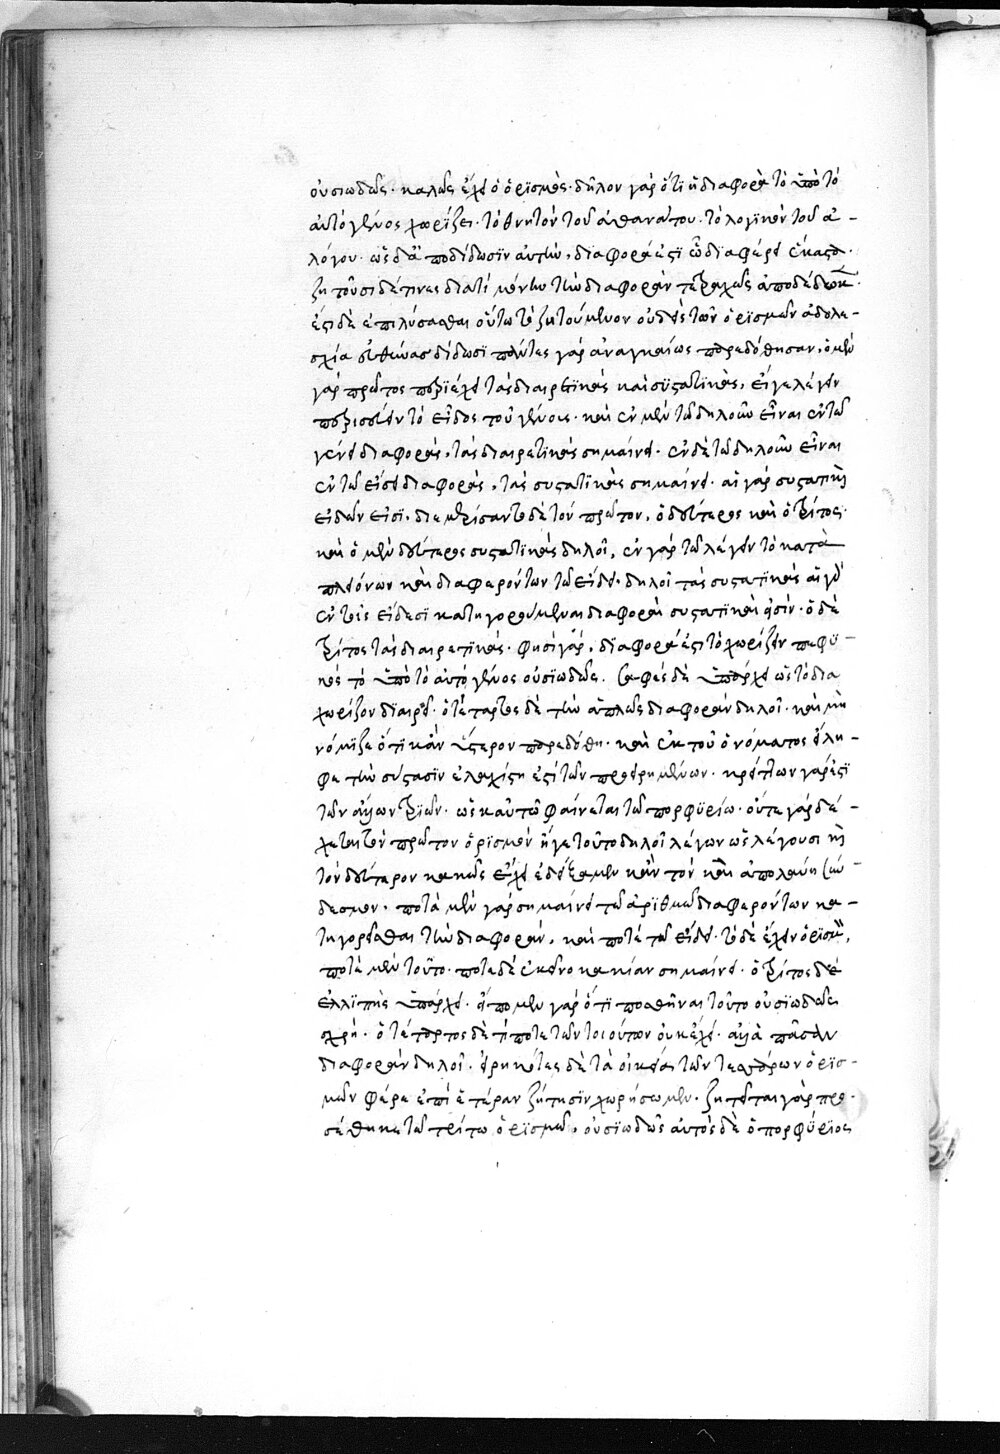 οὐσιωδῶς· καλῶς ἔχει ὁ ὁρισμός· δῆλον γὰρ ὅτι ἡ διαφορὰ τὸ ὑπὸ τὸ
αὐτὸ γένος χωρίζει· τὸ θνητὸν τοῦ ἀθανάτου· τὸ λογικὸν τοῦ ἀ-
λόγου· ὡς δὲ ἀποδίδωσιν αὐτήν, διαφορά ἐστι ᾧ διαφέρει ἕκαστα·
ζητοῦσι δέ τινες διατί μόνην τὴν διαφορὰν τετραχῶς ἀποδέδωκεν·
ἔστι δὲ ἐπιλύσασθαι οὕτω τὸ ζητούμενον οὐδεὶς τῶν ὁρισμῶν ἀδολε-
σχίας εὐθύνας δίδωσι πάντες γὰρ ἀναγκαίως παρεδόθησαν, ὁ μὲν
γὰρ πρῶτος περιέχει τὰς διαιρετικὰς καὶ συστατικάς, εἴ γε λέγειν
περισσεύειν τὸ εἶδος τοῦ γένους· καὶ ἐν μὲν τῷ δηλοῦν εἶναι ἐν τῷ
γένει διαφοράς, τὰς διαιρετικὰς σημαίνει· ἐν δὲ τῷ δηλοῦν εἶναι
ἐν τῷ εἴδει διαφοράς, τὰς συστατικὰς σημαίνει· αἱ γὰρ συστατικαὶ
εἰδῶν εἰσι, διεμερίσαντο δὲ τὸν πρῶτον, ὁ δεύτερος καὶ ὁ τρίτος·
καὶ ὁ μὲν δεύτερος συστατικὰς δηλοῖ, ἐν γὰρ τῷ λέγειν τὸ κατὰ
πλειόνων καὶ διαφερόντων τῷ εἴδει· δηλοῖ τὰς συστατικὰς αἱ γὰρ
ἐν τοῖς εἴδεσι κατηγορούμεναι διαφοραὶ συστατικαί εἰσιν· ὁ δὲ
τρίτος τὰς διαιρετικάς· φησὶ γάρ, διαφορά ἐστι τὸ χωρίζειν πεφυ-
κὸς τὸ ὑπὸ τὸ αὐτὸ γένος οὐσιωδῶς. σαφὲς δὲ ὑπάρχει ὡς τὸ δια
χωρίζον διαιρεῖ· ὁ τέταρτος δὲ τὴν ἁπλῶς διαφορὰν δηλοῖ· καὶ μὴ
νόμιζε ὅτι κἂν ὕστερον παρεδόθη· καὶ ἐκ τοῦ ὀνόματος εἴλη-
φε τὴν σύστασιν ἐλαχίστη ἐστὶ τῶν προειρημένων· κρείττων γάρ ἐστι
τῶν ἄλλων τριῶν· ὡς καὐτῷ φαίνεται τῷ πορφυρίῳ· οὔτε γὰρ δέ-
χεται τὸν πρῶτον ὁρισμὸν ἤγε τοῦτο δηλοῖ λέγων ὡς λέγουσι καὶ
τὸν δεύτερον κακῶς ἔχει ἐδείξαμεν κἂν τὸν καὶ ἀπολαύῃ σύν-
δεσμον· ποτὲ μὲν γὰρ σημαίνει τῷ ἀριθμῷ διαφερόντων κα-
τηγορεῖσθαι τὴν διαφοράν, καὶ ποτὲ τῷ εἴδει· τὸ δὲ ἔχειν ὁρισμόν,
ποτὲ μὲν τοῦτο· ποτὲ δὲ ἐκεῖνο κακίαν σημαίνει· ὁ τρίτος δὲ
ἐλλιπὴς ὑπάρχει· εἴπομεν γὰρ ὅτι ποσθῆναι τοῦτο οὐσιωδῶς
χρή· ὁ τέταρτος δὲ τί ποτε τῶν τοιούτων οὐκ ἔχει· ἀλλὰ πᾶσαν
διαφορὰν δηλοῖ· εἰρηκότες δὲ τὰ οἰκεῖα τῶν τεσσάρων ὁρισ-
μῶν φέρε ἐπὶ ἑτέραν ζήτησιν χωρήσωμεν· ζητεῖται γὰρ προ-
σέθηκε τῷ τρίτῳ ὁρισμῷ, οὐσιωδῶς αὐτὸς δὲ ὁ πορφύριος